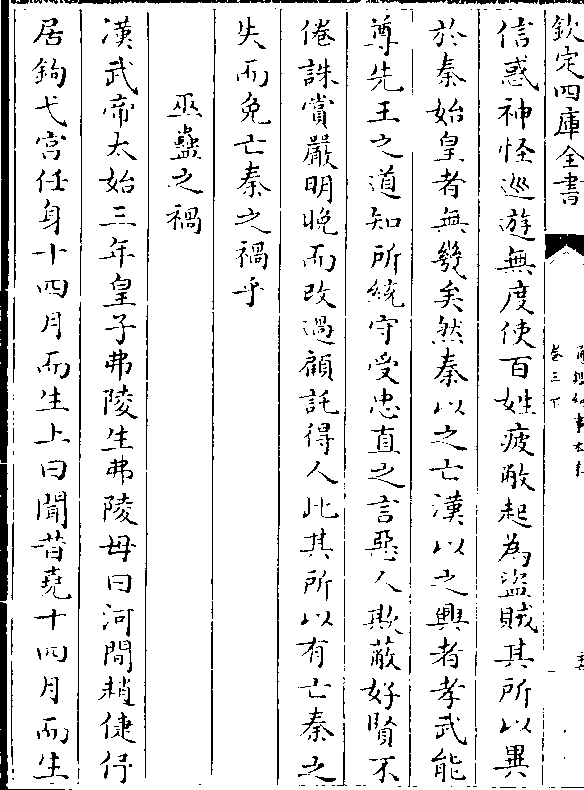 欽定四庫全書
卷三下
信惑神怪巡遊無度使百姓疲敝起為盜賊其所以異
於秦始皇者無幾矣然秦以之亡漢以之興者孝武能
尊先王之道知所統守受忠直之言惡人欺蔽好賢不
倦誅賞嚴明晚而改過顧託得人此其所以有亡秦之
失而免亡秦之禍乎
巫蠱之禍
漢武帝太始三年皇子弗陵生弗陵母曰河間趙倢伃
居鉤弋宮任身十四月而生上曰聞昔堯十四月而生